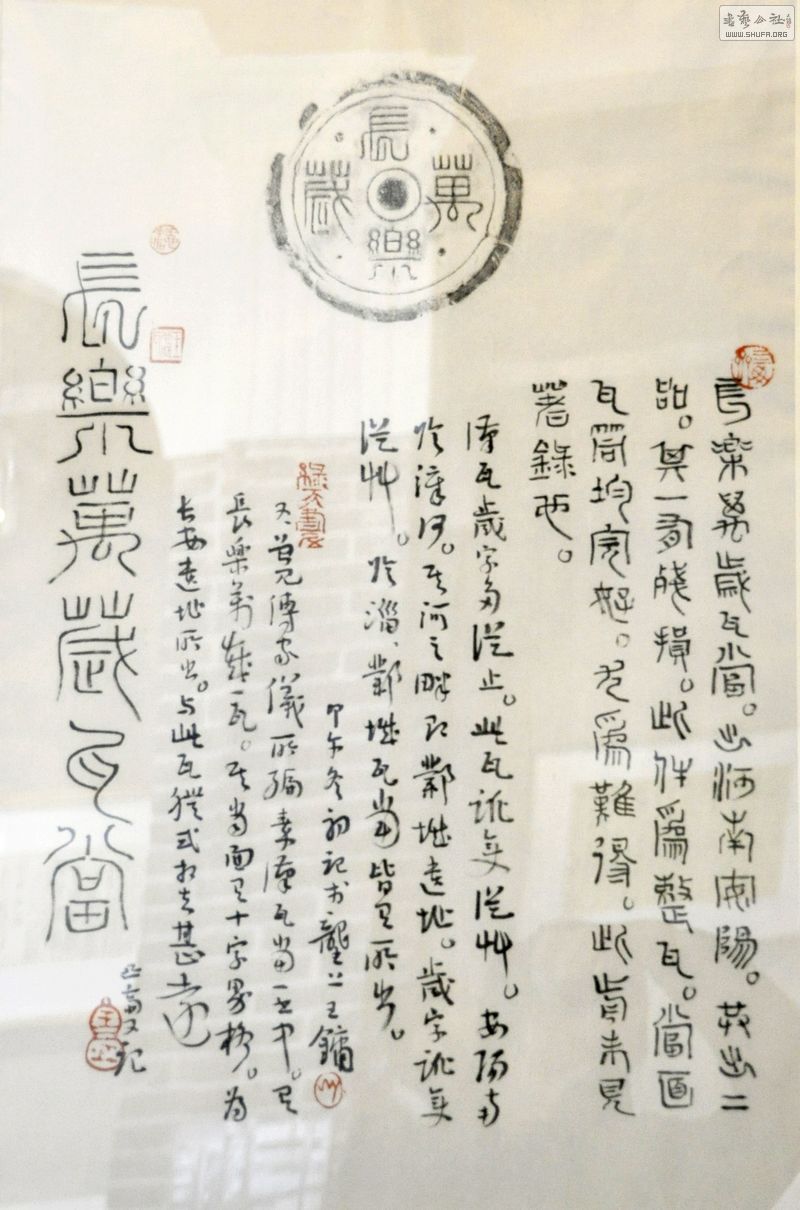 長樂萬歲
長樂萬歲瓦當。出河南安陽。共出二
品。其一有殘損。此件爲整瓦。當面
瓦筒均完好。尤爲難得。此前未見
著錄也。
漢瓦歲字多從止。此瓦訛變從艸。安陽古
鄴遺址。歲字訛變
從艸。於淄、鄴城瓦當皆有所出。
甲午冬初記於
王鏞
又曾見傅家儀所編秦漢瓦當一書中。有
長樂萬歲瓦。其當面有十字界格。爲
長安遺址所出。與此瓦體式相去甚遠
又記
長樂萬歲瓦當
書藝公社
WWW.SHUFA.ORG